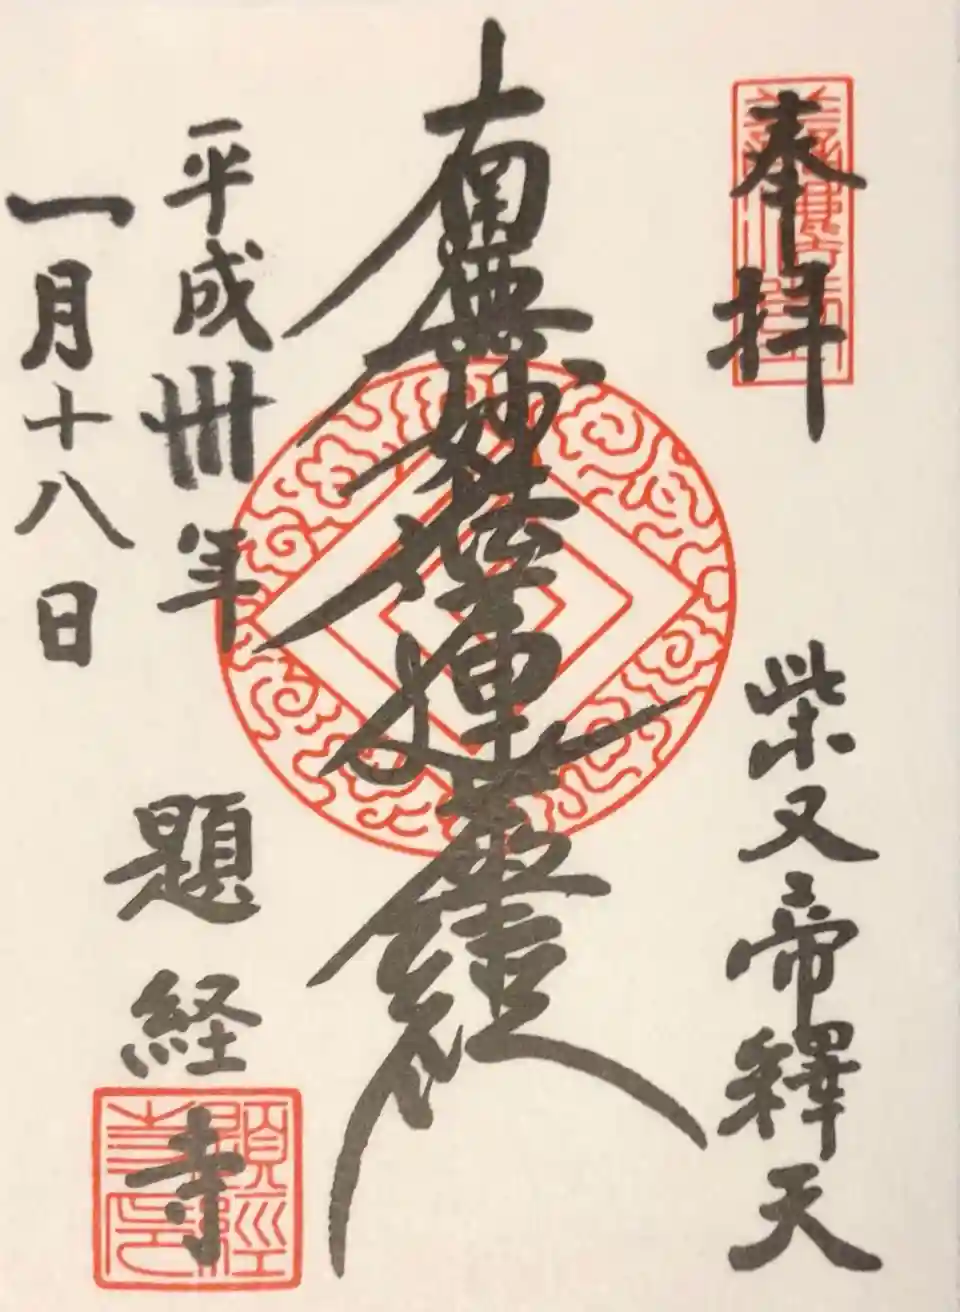 奉拝
柴又帝釋天
南無妙法蓮華經
平成卅年
一月十八日
題経寺
題經寺印